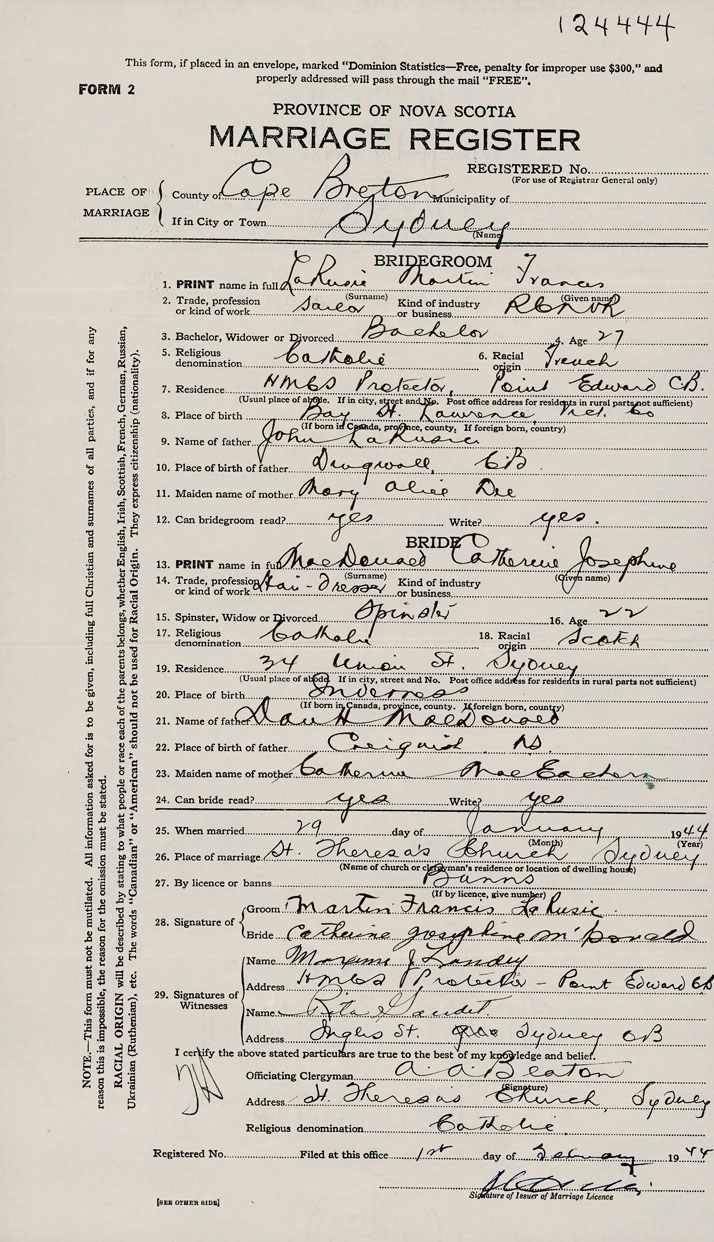 124444
This form, if placed in an envelope, marked "Dominion Statistics—Free, penalty for improper use $300," and
properly addressed will pass through the mail "FREE".
FORM 2
PROVINCE OF NOVA SCOTIA
MARRIAGE REGISTER
REGISTERED No.
(For use of Registrar General only)
PLACE OF MARRIAGE
County of Cape Breton Municipality of
If in City or Town Sydney
(Name)
BRIDEGROOM
1. PRINT name in full LaRusic Martin Francis
(Surname) (Given name)
2. Trade, profession or kind of work Sailor Kind of industry or business RCNVR
3. Bachelor, Widower or Divorced Bachelor 4. Age 27
5. Religious denomination Catholic 6. Racial origin French
7. Residence HMCS Protector, Point Edward C.B.
(Usual place of abode. If in city, street and No. Post office address for residents in rural parts not sufficient)
8. Place of birth Bay St. Lawrence Vict. Co
(If born in Canada, province, county. If foreign born, country)
9. Name of father John LaRusic
10. Place of birth of father Dingwall, C.B.
11. Maiden name of mother Mary Alice
12. Can bridegroom read? yes Write? yes.
BRIDE
13. PRINT name in full MacDonald Catherine Josephine
(Surname) (Given name)
14. Trade, profession or kind of work Hair-Dresser Kind of industry or business
15. Spinster, Widow or Divorced Spinster 16. Age 22
17. Religious denomination Catholic 18. Racial origin Scotch
19. Residence 34 Union St. Sydney
(Usual place of abode. If in city, street and No. Post office address for residents in rural parts not sufficient)
20. Place of birth Inverness
(If born in Canada, province, county. If foreign born, country)
21. Name of father Dan H MacDonald
22. Place of birth of father N.S.
23. Maiden name of mother Catherine MacEachern
24. Can bride read? yes Write? yes
25. When married 29 day of January 1944
(Month) (Year)
26. Place of marriage St. Theresa's Church Sydney
(Name of church or clergyman's residence or location of dwelling house)
27. By licence or banns Banns
(If by licence, give number)
28. Signature of
Groom Martin Francis LaRusic
Bride Catherine Josephine McDonald
29. Signatures of Witnesses
Name J Landry
Address HMCS Protector - Point Edward CB
Name Rita Gaudet
Address Inglis St. Sydney CB
I certify the above stated particulars are true to the best of my knowledge and belief.
Officiating Clergyman A. A. Beaton
(Signature)
Address St. Theresa's Church, Sydney
Religious denomination Catholic
Registered No. Filed at this office 1st day of February 1944
Signature of Issuer of Marriage Licence
[SEE OTHER SIDE]
NOTE.—This form must not be mutilated. All information asked for is to be given, including full Christian and surnames of all parties, and if for any
reason this is impossible, the reason for the omission must be stated.
RACIAL ORIGIN will be described by stating to what people or race each of the parents belongs, whether English, Irish, Scottish, French, German, Russian,
Ukrainian (Ruthenian), etc. The words "Canadian" or "American" should not be used for Racial Origin. They express citizenship (nationality).